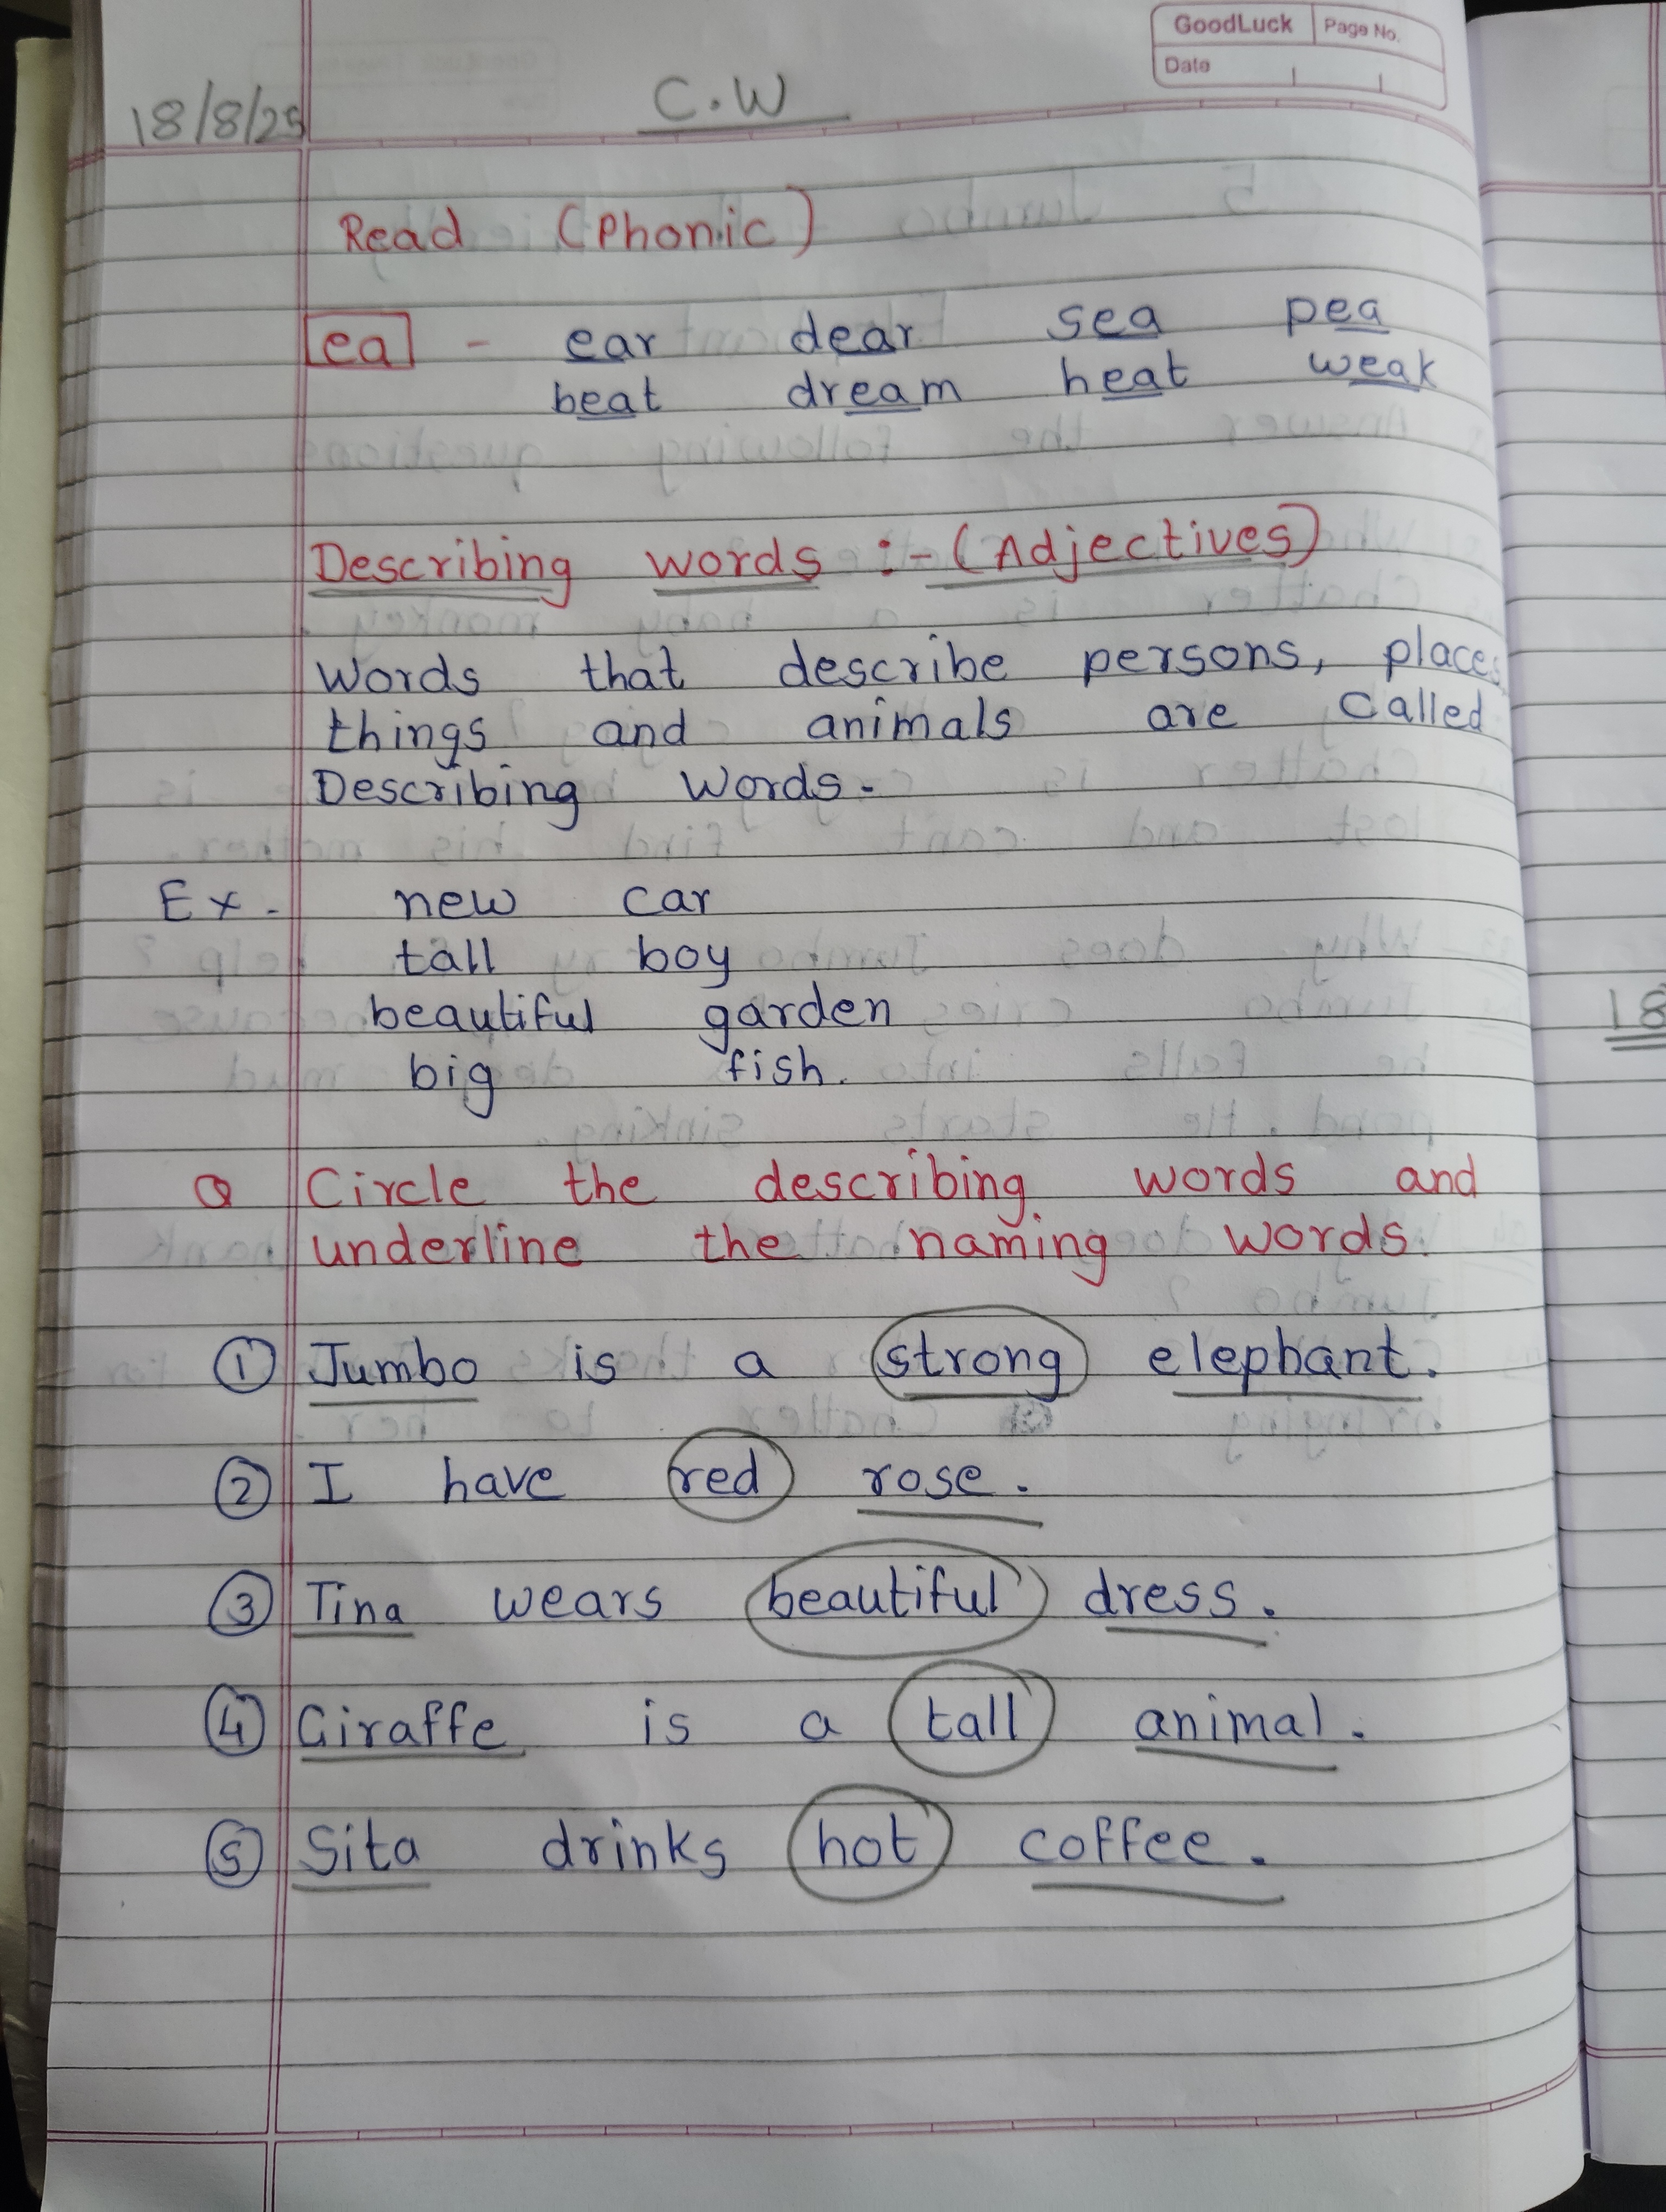 GoodLuck Page No.
Date
18/8/25 C.W
Read (Phonic)
ea - ear dear sea pea
beat dream heat weak
Describing words :- (Adjectives)
Words that describe persons, places
things and animals are called
Describing Words.
Ex. new car
tall boy
beautiful garden
big fish.
Q Circle the describing words and
underline the naming words.
1 Jumbo is a strong elephant.
2 I have red rose.
3 Tina wears beautiful dress.
4 Giraffe is a tall animal.
5 Sita drinks hot coffee.
18